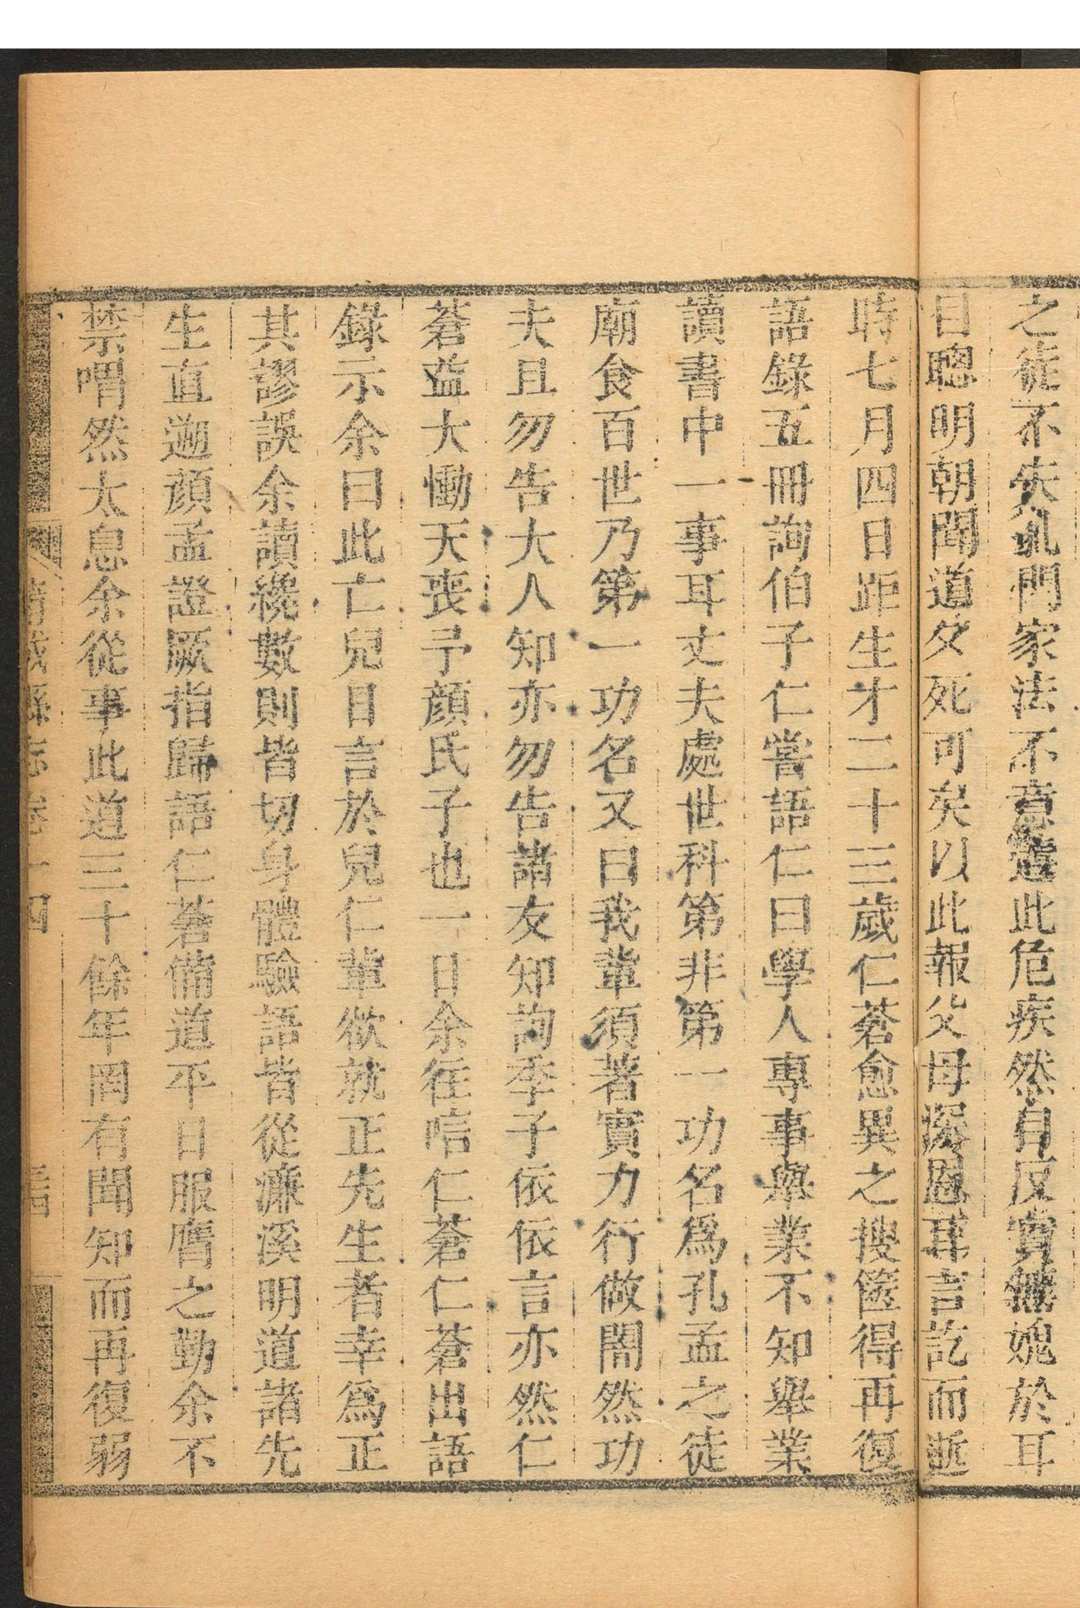 之徒不失孔門家法不意遘此危疾然自反實無媿於耳
目聰明朝聞道夕死可矣以此報父母深恩耳言訖而逝
時七月四日距生才二十三歲仁蒼愈異之搜篋得再復
語錄五冊詢伯子仁嘗語仁曰學人專事舉業不知舉業
讀書中一事耳丈夫處世科第非第一功名為孔孟之徒
廟食百世乃第一功名又曰我輩須著實力行做闇然功
夫且勿告大人知亦勿告諸友知詢季子依依言亦然仁
蒼益大慟天喪予顏氏子也一日余往唁仁蒼仁蒼出語
錄示余曰此亡兒目言於兒仁輩欲就正先生者幸為正
其謬誤余讀纔數則皆切身體驗語皆從濂溪明道諸先
生直遡顏孟證厥指歸語仁蒼備道平日服膺之勤余不
禁喟然太息余從事此道三十餘年罔有聞知而再復弱
縣志卷十四